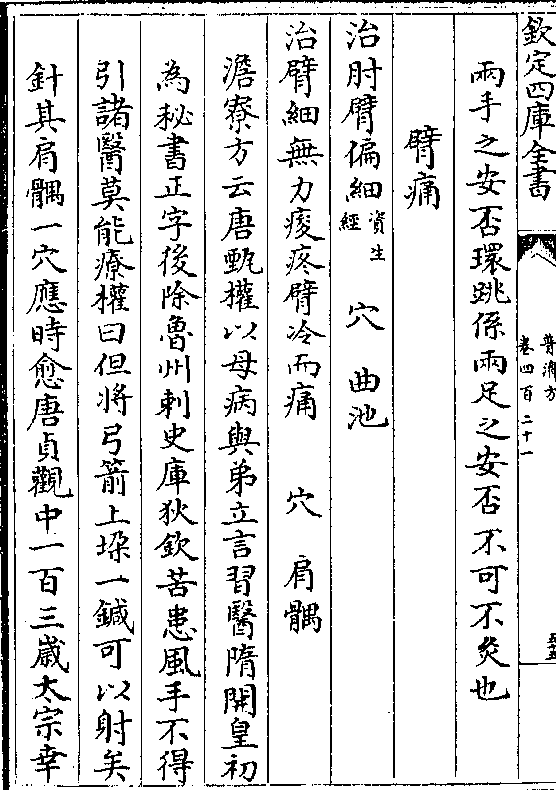 欽定四庫全書
普濟方
卷四百二十一
兩手之安否環跳係兩足之安否不可不灸也
臂痛
治肘臂偏細資生經　穴　曲池
治臂細無力痠疼臂冷而痛　穴　肩髃
澹寮方云唐甄權以母病與弟立言習醫隋開皇初
為秘書正字後除魯州刺史庫狄欽苦患風手不得
引諸醫莫能療權曰但將弓箭上垜一鍼可以射矣
針其肩髃一穴應時愈唐貞觀中一百三歲太宗幸